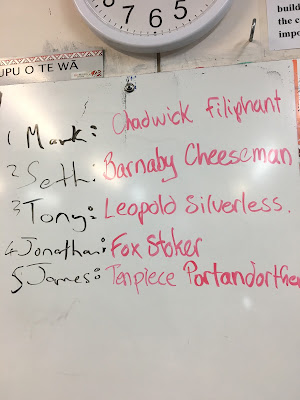 7 6 5
build
the c
impo
UPU O TE WĀ
1 Mark: Chadwick Filiphant
2 Seth: Barnaby Cheeseman
3 Tony: Leopold Silverless.
4 Jonathan: Fox Stoker
5 James: Tenpiece